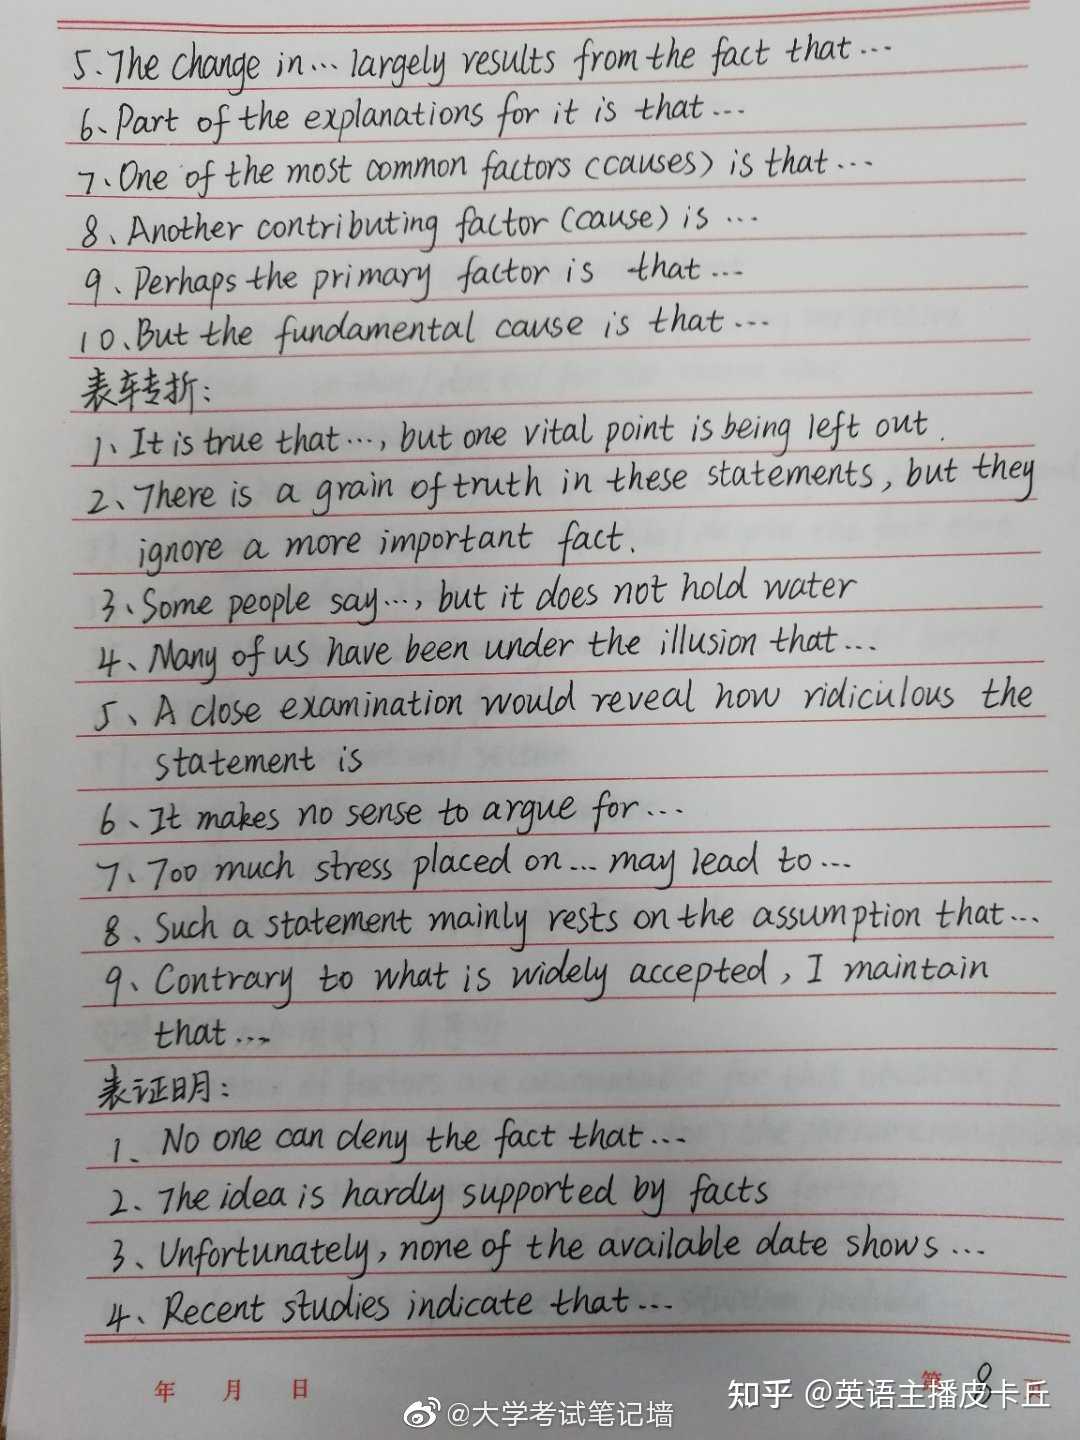 5.The change in… largely results from the fact that…
6、Part of the explanations for it is that…
7、One of the most common factors (causes) is that…
8、Another contributing factor (cause) is …
9、Perhaps the primary factor is that…
10、But the fundamental cause is that…
表转折：
1、It is true that…, but one vital point is being left out.
2、There is a grain of truth in these statements, but they
ignore a more important fact.
3、Some people say…, but it does not hold water
4、Many of us have been under the illusion that…
5、A close examination would reveal how ridiculous the
statement is
6、It makes no sense to argue for…
7、Too much stress placed on… may lead to…
8、Such a statement mainly rests on the assumption that…
9、Contrary to what is widely accepted, I maintain
that…
表证明：
1、No one can deny the fact that…
2、The idea is hardly supported by facts
3、Unfortunately, none of the available date shows…
4、Recent studies indicate that…
年 月 日
第 8 页
知乎 @英语主播皮卡丘
@大学考试笔记墙